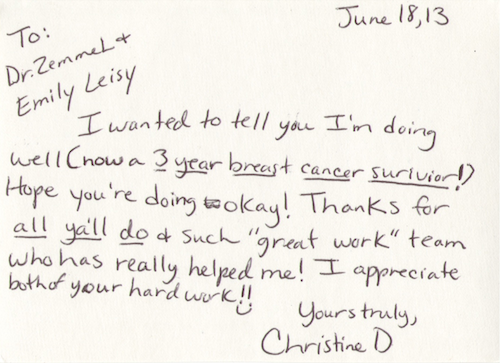 June 18,13
To:
Dr. Zemmel &
Emily Leisy
I wanted to tell you I'm doing
well (now a 3 year breast cancer surivior!)
Hope you're doing okay! Thanks for
all ya'll do & such "great work" team
who has really helped me! I appreciate
both of your hard work!!
Yours truly,
Christine D